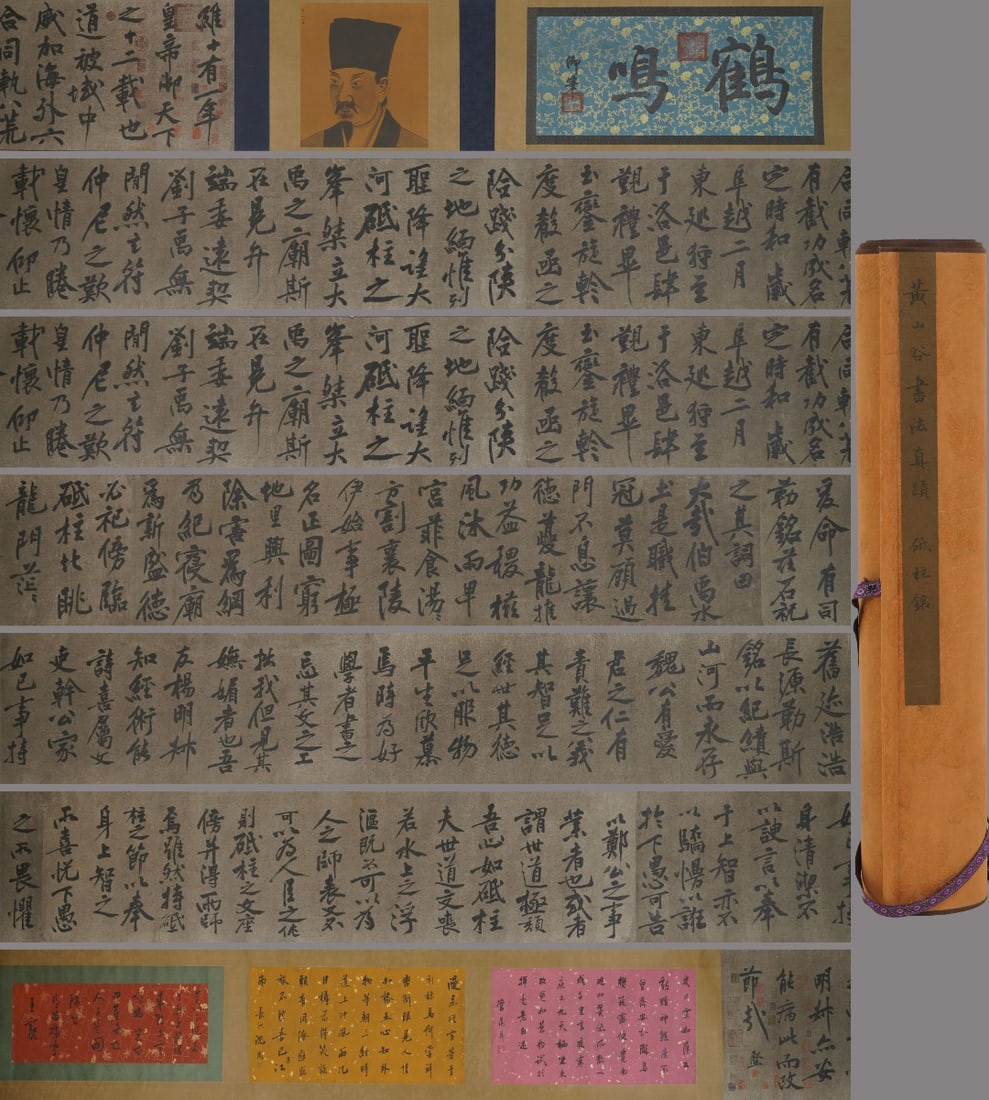 鶴鳴
御筆
維十有一年
皇帝御天下
之十二載也
道被域中
威加海外六
合同軌八荒
合同軌八荒
有截功成名
定時和歲
阜越二月
東巡狩至
于洛邑肆
覲禮畢
玉鑾旋軫
度殽函之
險踐分陝
之地緬惟列
聖降望大
河砥柱之
峯桀立大
禹之廟斯
在見弁
端委遠契
劉子禹無
閒然玄符
仲尼之歎
皇情乃睠
載懷仰止
合同軌八荒
有截功成名
定時和歲
阜越二月
東巡狩至
于洛邑肆
覲禮畢
玉鑾旋軫
度殽函之
險踐分陝
之地緬惟列
聖降望大
河砥柱之
峯桀立大
禹之廟斯
在見弁
端委遠契
劉子禹無
閒然玄符
仲尼之歎
皇情乃睠
載懷仰止
爰命有司
勒銘茲石祀
之其詞曰
大哉伯禹水
土是職挂
冠莫顧過
門不息讓
德夔龍推
功益稷櫛
風沐雨卑
宮菲食湯湯
方割襄陵
伊始事極
名正圖窮
地里興利
除害為綱
乃紀寢廟
為新盛德
必祀傍臨
砥柱北眺
龍門茫茫
舊迹浩浩
長源勒斯
銘以紀績與
山河而永存
魏公有愛
君之仁有
責難之義
其智足以
經世其德
足以服物
平生欣慕
焉時為好
學者書之
忘其文之工
拙我但見其
嫵媚者也吾
友楊明叔
知經術能
詩喜屬文
吏幹公家
如己事持
如己事持
身清潔不
以諛言以奉
于上智亦不
以驕慢以誑
於下愚可告
以鄭公之事
業者也或者
謂世道極頹
吾心如砥柱
夫世道交喪
若水上之浮
漚既不可以為
人之師表又不
可以為人臣之佐
則砥柱之文座
傍并得兩師
焉雖然持砥
柱之節以奉
身上智之
所喜悅下愚
之所畏懼
明叔亦安
能病此而改
節哉
黃山谷書法真蹟 砥柱銘